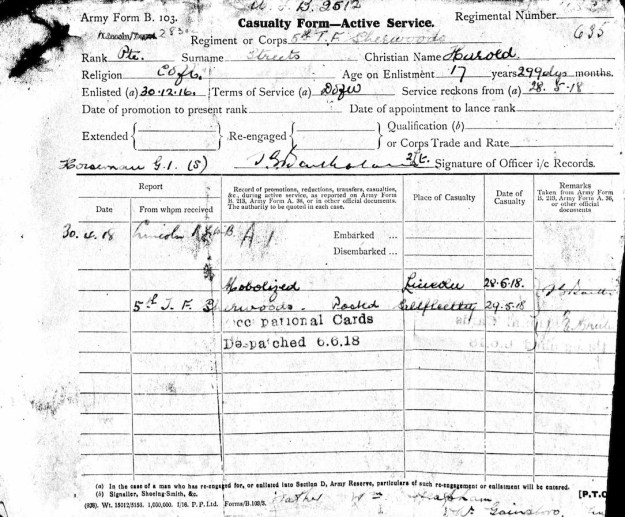 Army Form B. 103.
Casualty Form—Active Service.
Regimental Number
635
Regiment or Corps 5th T. F. Sherwoods
Rank Pte. Surname Streets Christian Name Harold
Religion C of E. Age on Enlistment 17 years 299 dys months.
Enlisted (a) 30.12.16. Terms of Service (a) DofW Service reckons from (a) 28.5.18
Date of promotion to present rank Date of appointment to lance rank
Extended Re-engaged Qualification (b)
or Corps Trade and Rate
Horseman G.1. (S) Signature of Officer i/c Records.
Report
Date From whom received
Record of promotions, reductions, transfers, casualties, &c., during active service, as reported on Army Form B. 213, Army Form A. 36, or in other official documents. The authority to be quoted in each case.
Place of Casualty
Date of Casualty
Remarks
Taken from Army Form B. 213, Army Form A. 36, or other official documents
30.4.18 Lincoln A 1 Embarked ...
Disembarked ...
Mobolized Lincoln 28.5.18.
5th T. F. Sherwoods. Posted 29.5.18
pational Cards
Despatched 6.6.18
(a) In the case of a man who has re-engaged for, or enlisted into Section D, Army Reserve, particulars of such re-engagement or enlistment will be entered.
(b) Signaller, Shoeing-Smith, &c. [P.T.O
Wt. 15012/5150. 1,000,000. 1/16. P.P.Ltd. Forms/B.103/2.
Father
Gainsboro